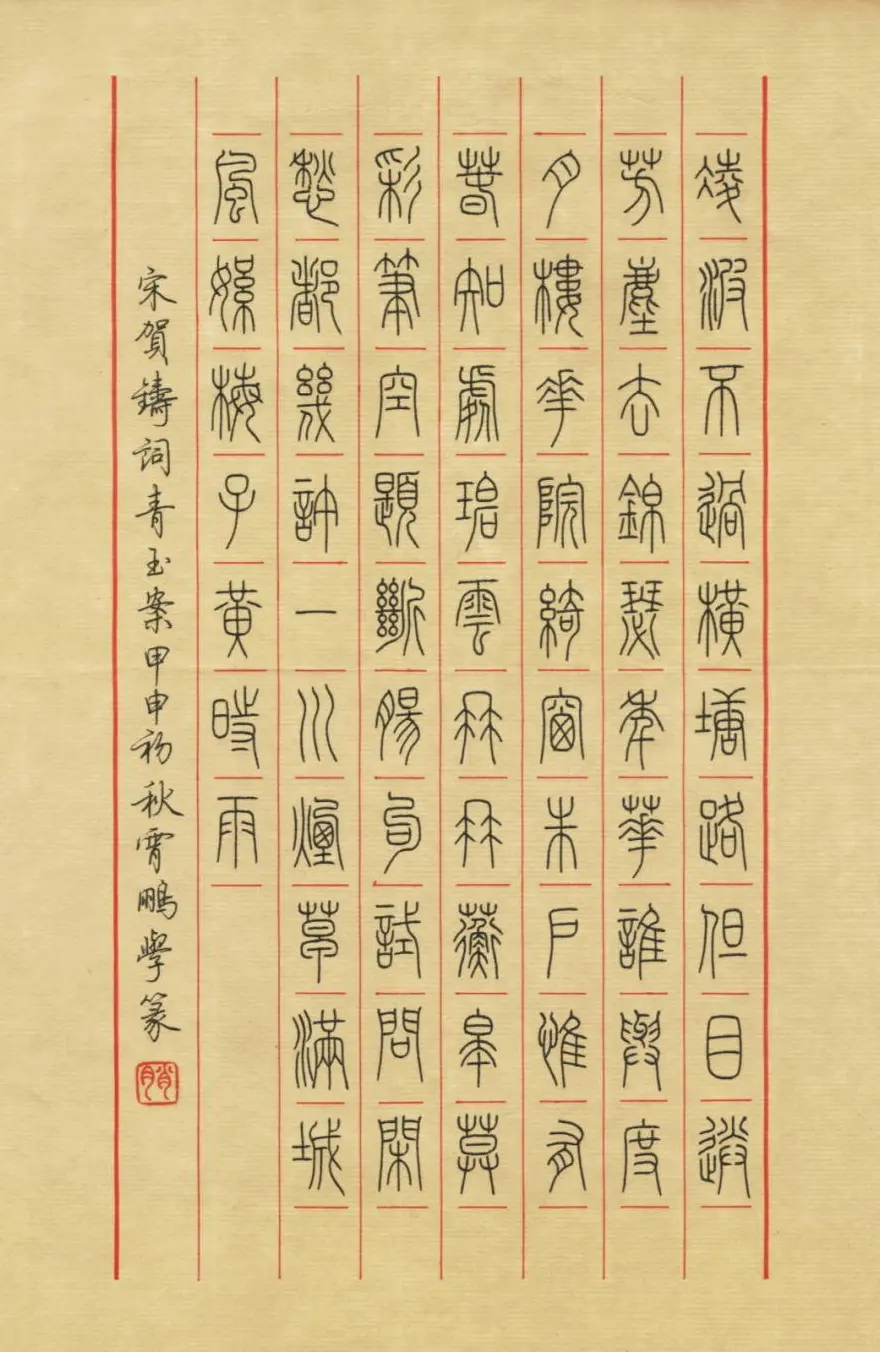 凌波不過橫塘路但目送
芳塵去錦瑟年華誰與度
月樓花院綺窗朱戶惟有
春知處碧雲冉冉蘅皋莫
彩筆空題斷腸句試問閑
愁都幾許一川煙草滿城
風絮梅子黃時雨
宋賀鑄詞青玉案甲申初秋霄鵬學篆